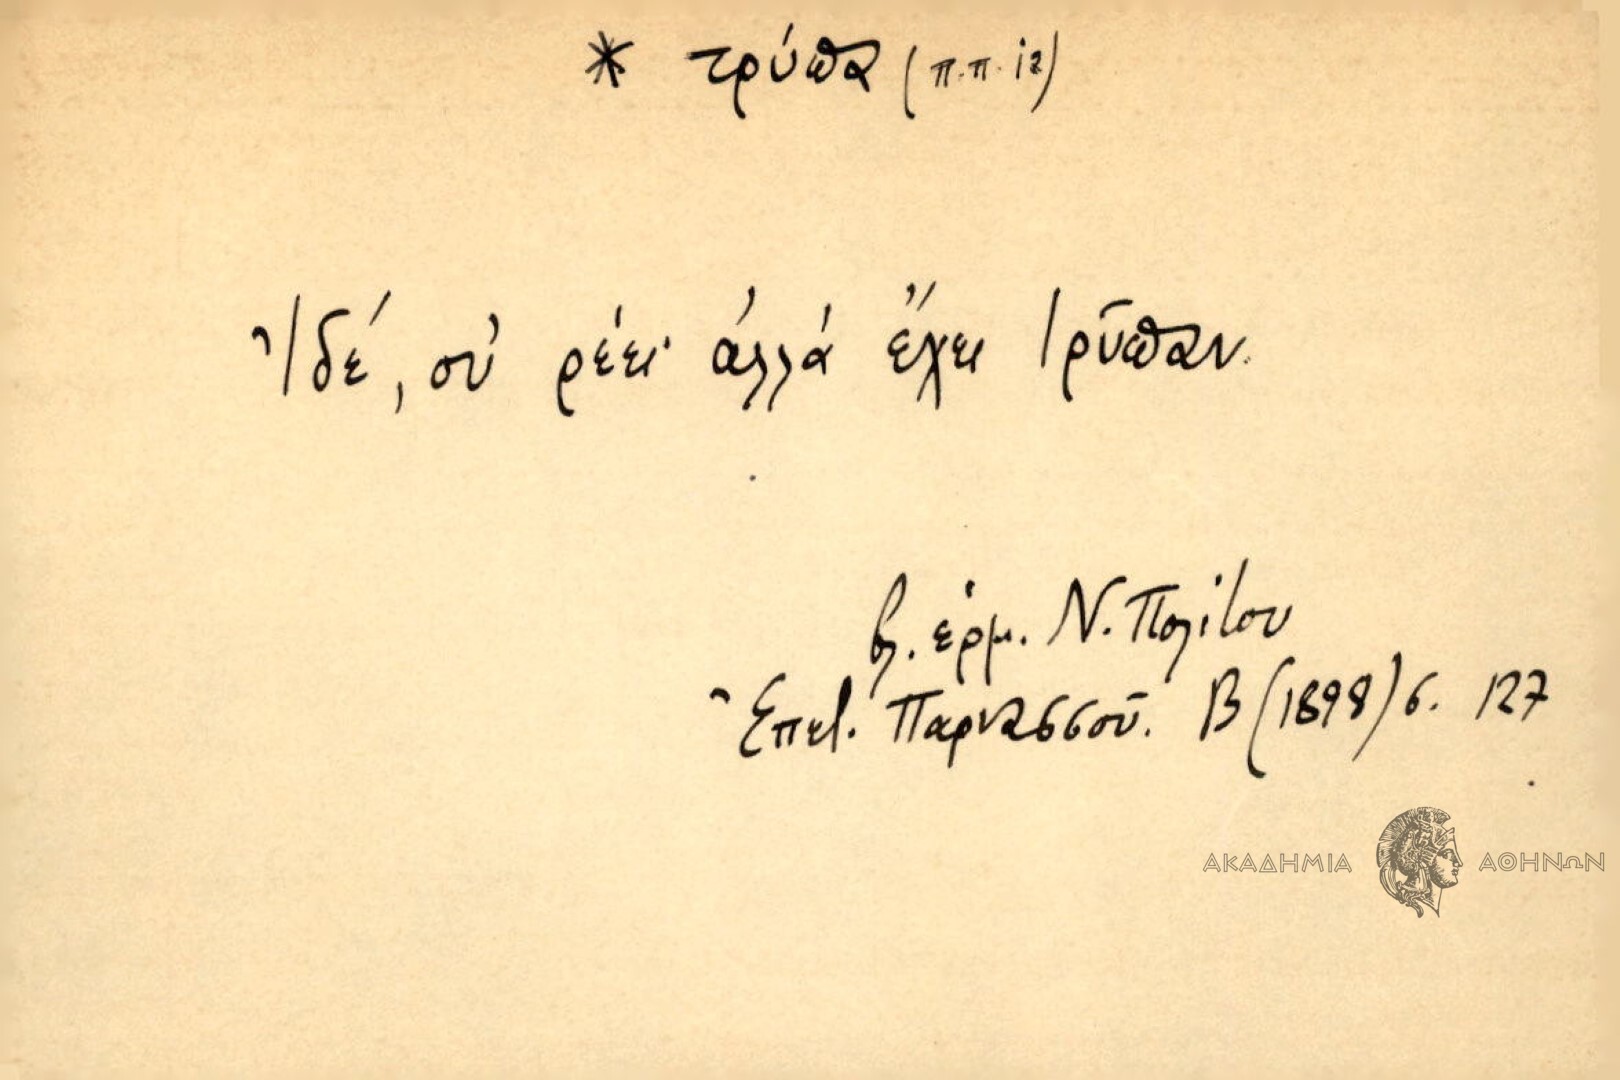 * τρύπα (π.π. 12)
Ἰδέ, οὐ ρέει· ἀλλά ἔχει τρῦπαν.
βλ. ἑρμ. Ν. Πολίτου
Ἐπετ. Παρνασσοῦ. Β (1898) σ. 127
ΑΚΑΔΗΜΙΑ ΑΘΗΝΩΝ